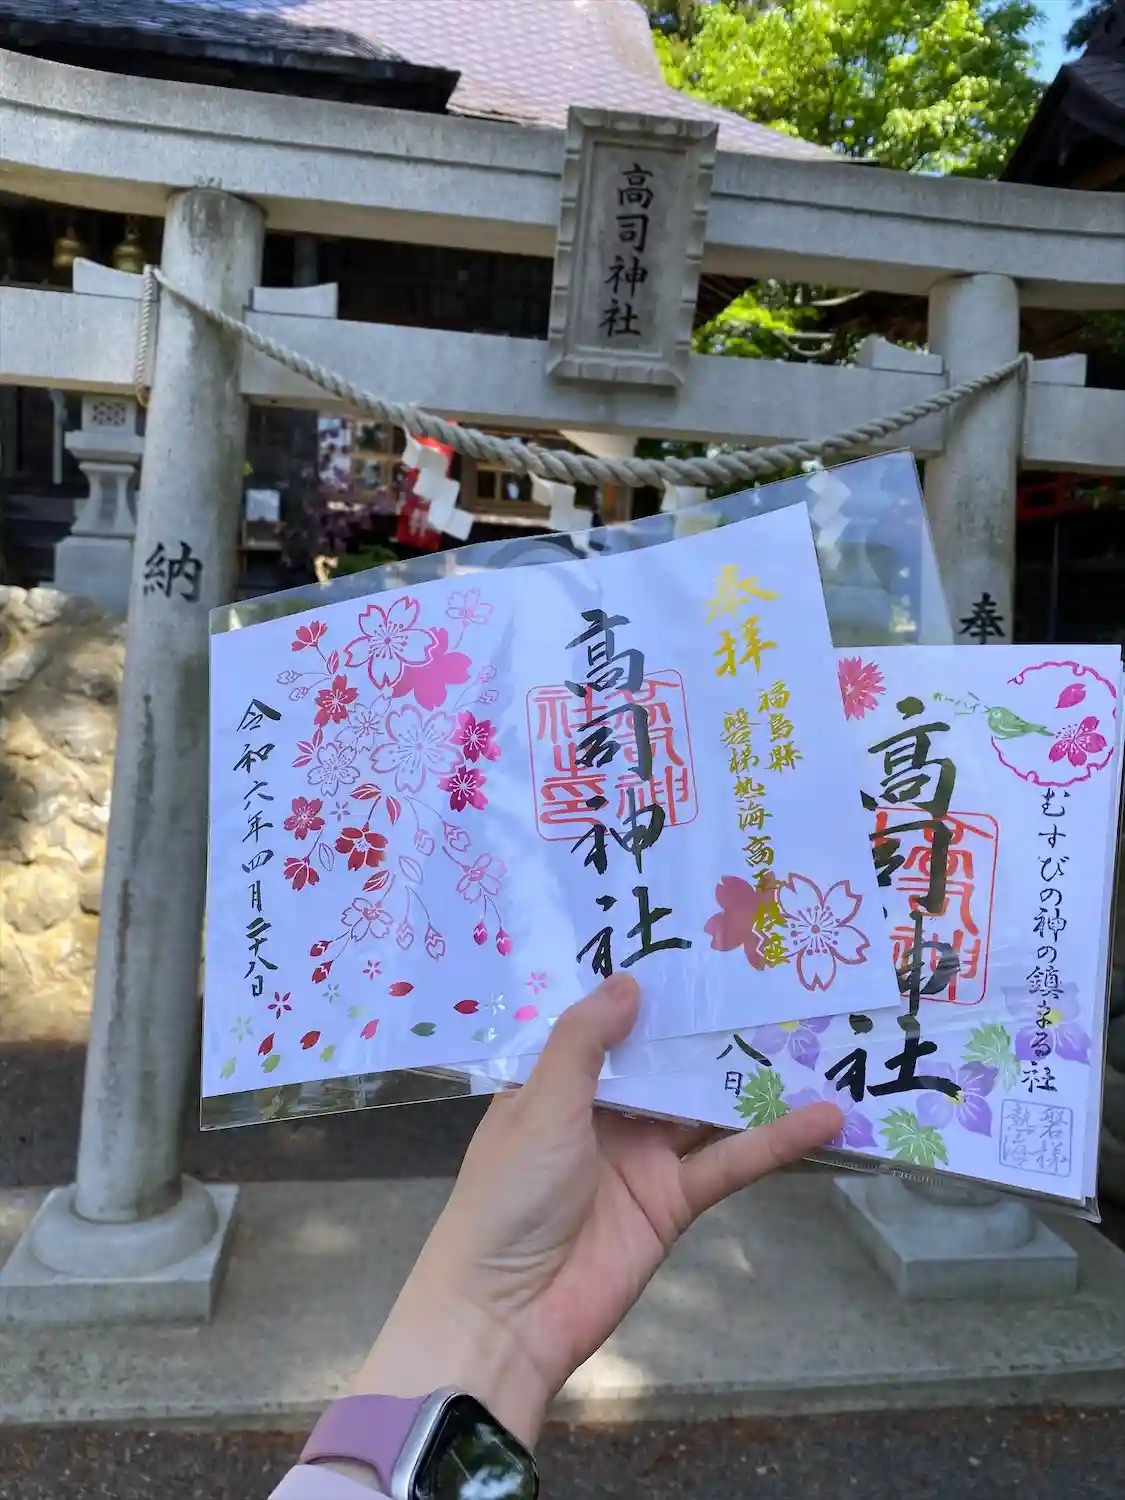 高司神社
奉
納
奉拝
福島縣
磐梯熱海高玉鎮座
高司神社
高司神社之印
令和六年四月二十八日
むすびの神の鎮まる社
高司神社
八日
磐梯
熱海